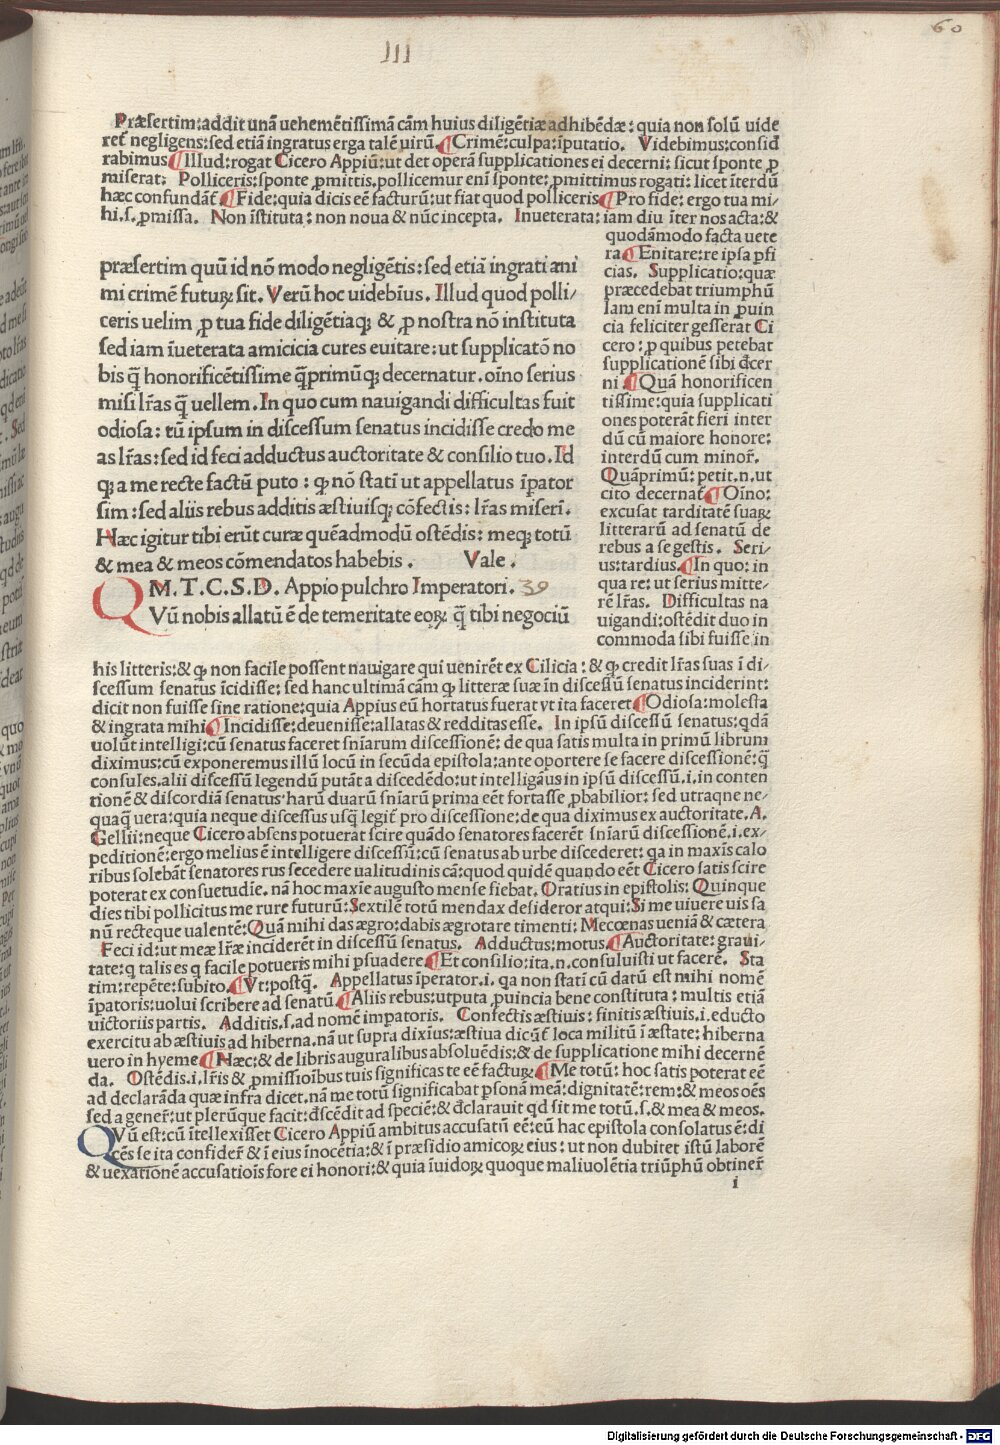 60
III
Præsertim:addit unā uehemētissimā cām huius diligētiæ adhibēdæ: quia non solū uide
ret᷑ negligens:sed etiā ingratus erga talē uirū.¶Crimē:culpa:īputatio. Videbimus:consid
rabimus¶Illud:rogat Cicero Appiū:ut det operā supplicationes ei decerni: sicut sponte ꝓ
miserat: Polliceris:sponte ꝓmittis.pollicemur enī sponte:ꝓmittimus rogati: licet īterdū
hæc confundāt᷑.¶Fide:quia dicis eē facturū:ut fiat quod polliceris¶Pro fide: ergo tua mi/
hi.s.ꝓmissa. Non īstituta: non noua & nūc incepta. Inueterata: iam diu īter nos acta:&
quodāmodo facta uete
ra¶Enitare:re ipsa ꝑfi
cias. Supplicatio:quæ
præcedebat triumphū
Iam enī multa in ꝓuin
cia feliciter gesserat Ci
cero:ꝑ quibus petebat
supplicationē sibi đcer
ni¶Quā honorificen
tissime:quia supplicati
ones poterāt fieri inter
dū cū maiore honore:
interdū cum minor᷑.
Quāprimū: petit.n.ut
cito decernat᷑¶Oīno:
excusat tarditatē suaꝝ
litterarū ad senatū de
rebus a se gestis. Seri/
us:tardius.¶In quo: in
qua re: ut serius mitte/
rē lr̄as. Difficultas na
uigandi:ostēdit duo in
commoda sibi fuisse in
præsertim quū id nō modo negligētis: sed etiā ingrati ani
mi crimē futuꝝ sit. Verū hoc uidebīus. Illud quod polli/
ceris uelim ꝓ tua fide diligētiaqꝫ & ꝓ nostra nō instituta
sed iam īueterata amicicia cures euitare: ut supplicatō no
bis q̄ honorificētissime q̄primūqꝫ decernatur. oīno serius
misi lr̄as q̄ uellem. In quo cum nauigandi difficultas fuit
odiosa: tū ipsum in discessum senatus incidisse credo me
as lr̄as: sed id feci adductus auctoritate & consilio tuo. Id
qꝫ a me recte factū puto : ꝙ nō statī ut appellatus īperator
sim: sed aliis rebus additis æstiuisqꝫ cōfectis: lr̄as miserī.
Hæc igitur tibi erūt curæ quēadmodū ostēdis: meqꝫ totū
& mea & meos cōmendatos habebis . Vale .
QM.T.C.S.D. Appio pulchro Imperatori. 39
Vū nobis allatū ē de temeritate eoꝝ q̄ tibi negociū
his litteris:& ꝙ non facile possent nauigare qui uenirēt ex Cilicia: & ꝙ credit lr̄as suas ī di/
scessum senatus īcidisse: sed hanc ultimā cām ꝙ litteræ suæ īn discessū senatus inciderint:
dicit non fuisse sine ratione:quia Appius eū hortatus fuerat vt ita faceret¶Odiosa:molesta
& ingrata mihi¶Incidisse:deuenisse:allatas & redditas esse. In ipsū discessū senatus:qdā
uolūt intelligi:cū senatus faceret sn̄iarum discessionē: de qua satis multa in primū librum
diximus:cū exponeremus illū locū in secūda epistola:ante oportere se facere discessionē:q̄
consules.alii discessū legendū putāt a discedēdo:ut intelligāus in ipsū discessū.i.in conten
tionē & discordiā senatus'harū duarū sn̄iarū prima eēt fortasse ꝓbabilior: sed utraqne ne/
quaq̄ uera:quia neque discessus usq̄ legit᷑ pro discessione:de qua diximus ex auctoritate.A.
Gellii:neque Cicero absens potuerat scire quādo senatores facerēt sn̄iarū discessionē.i.ex/
peditionē:ergo melius ē intelligere discessū:cū senatus ab urbe discederet: qa in maxīs calo
ribus solebāt senatores rus secedere ualitudinis cā:quod quidē quando eēt Cicero satis scire
poterat ex consuetudīe. nā hoc maxīe augusto mense fiebat. Oratius in epistolis: Quinque
dies tibi pollicitus me rure futurū:Sextilē totū mendax desideror atqui:Si me uiuere uis sa
nū recteque ualentē:Quā mihi das ægro:dabis ægrotare timenti: Mecœnas ueniā & cætera
Feci id:ut meæ lr̄æ inciderēt in discessū senatus. Adductus:motus.¶Auctoritate:graui/
tate:q talis es q facile potueris mihi ꝑsuadere¶Et consilio:ita.n.consuluisti ut facerē. Sta
tim:repēte:subito.¶Vt:postq̄. Appellatus īperator.i.qa non statī cū datū est mihi nomē
īpatoris:uolui scribere ad senatū¶Aliis rebus:utputa ꝓuincia bene constituta: multis etiā
uictoriis partis. Additis.s.ad nomē impatoris. Confectis æstiuis: finitis æstiuis.i.educto
exercitu ab æstiuis ad hiberna.nā ut supra dixīus:æstiua dicūt᷑ loca militū ī æstate: hiberna
uero in hyeme¶Hæc:& de libris auguralibus absoluēdis:& de supplicatione mihi decernē
da. Ostēdis.i.lr̄is & ꝓmissioībus tuis significas te eē factuꝝ¶Me totū: hoc satis poterat eē
ad declarāda quæ infra dicet.nā me totū significabat ꝑsonā meā:dignitatē:rem:& meos oēs
sed a gener᷑:ut plerūque facit:đscēdit ad speciē:& đclarauit qđ sit me totū.s.& mea & meos.
QVū est:cū ītellexisset Cicero Appiū ambitus accusatū eē:eū hac epistola consolatus ē:di
cēs se ita confider᷑ & ī eius inocētia:& ī præsidio amicoꝝ eius: ut non dubitet istū laborē
& uexationē accusatiois fore ei honori:& quia īuidoꝝ quoque maliuolētia triūphū obtiner᷑
i
Digitalisierung gefördert durch die Deutsche Forschungsgemeinschaft - DFG